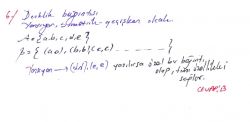 6/ Denklik bağıntısı
Yansıyan, simetrik - geçişken olacak
A = {a, b, c, d, e}
β = { (a,a), (b,b) (c,e)
Yansıyan → (d,d), (e,e) yazılırsa özel bir bağıntı
olup, tüm özellikleri
sağlar.
CEVAP: B